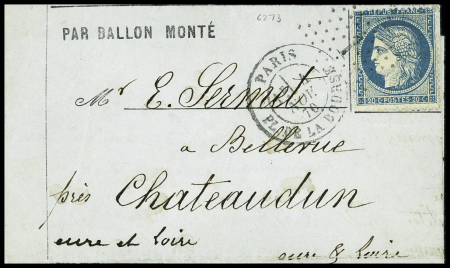 6773
PAR BALLON MONTÉ
PARIS
PL. DE LA BOURSE
20 C POSTES 20 C
Mr E. Sermet
a Bellevue
près Chateaudun
eure et Loire
eure & Loire